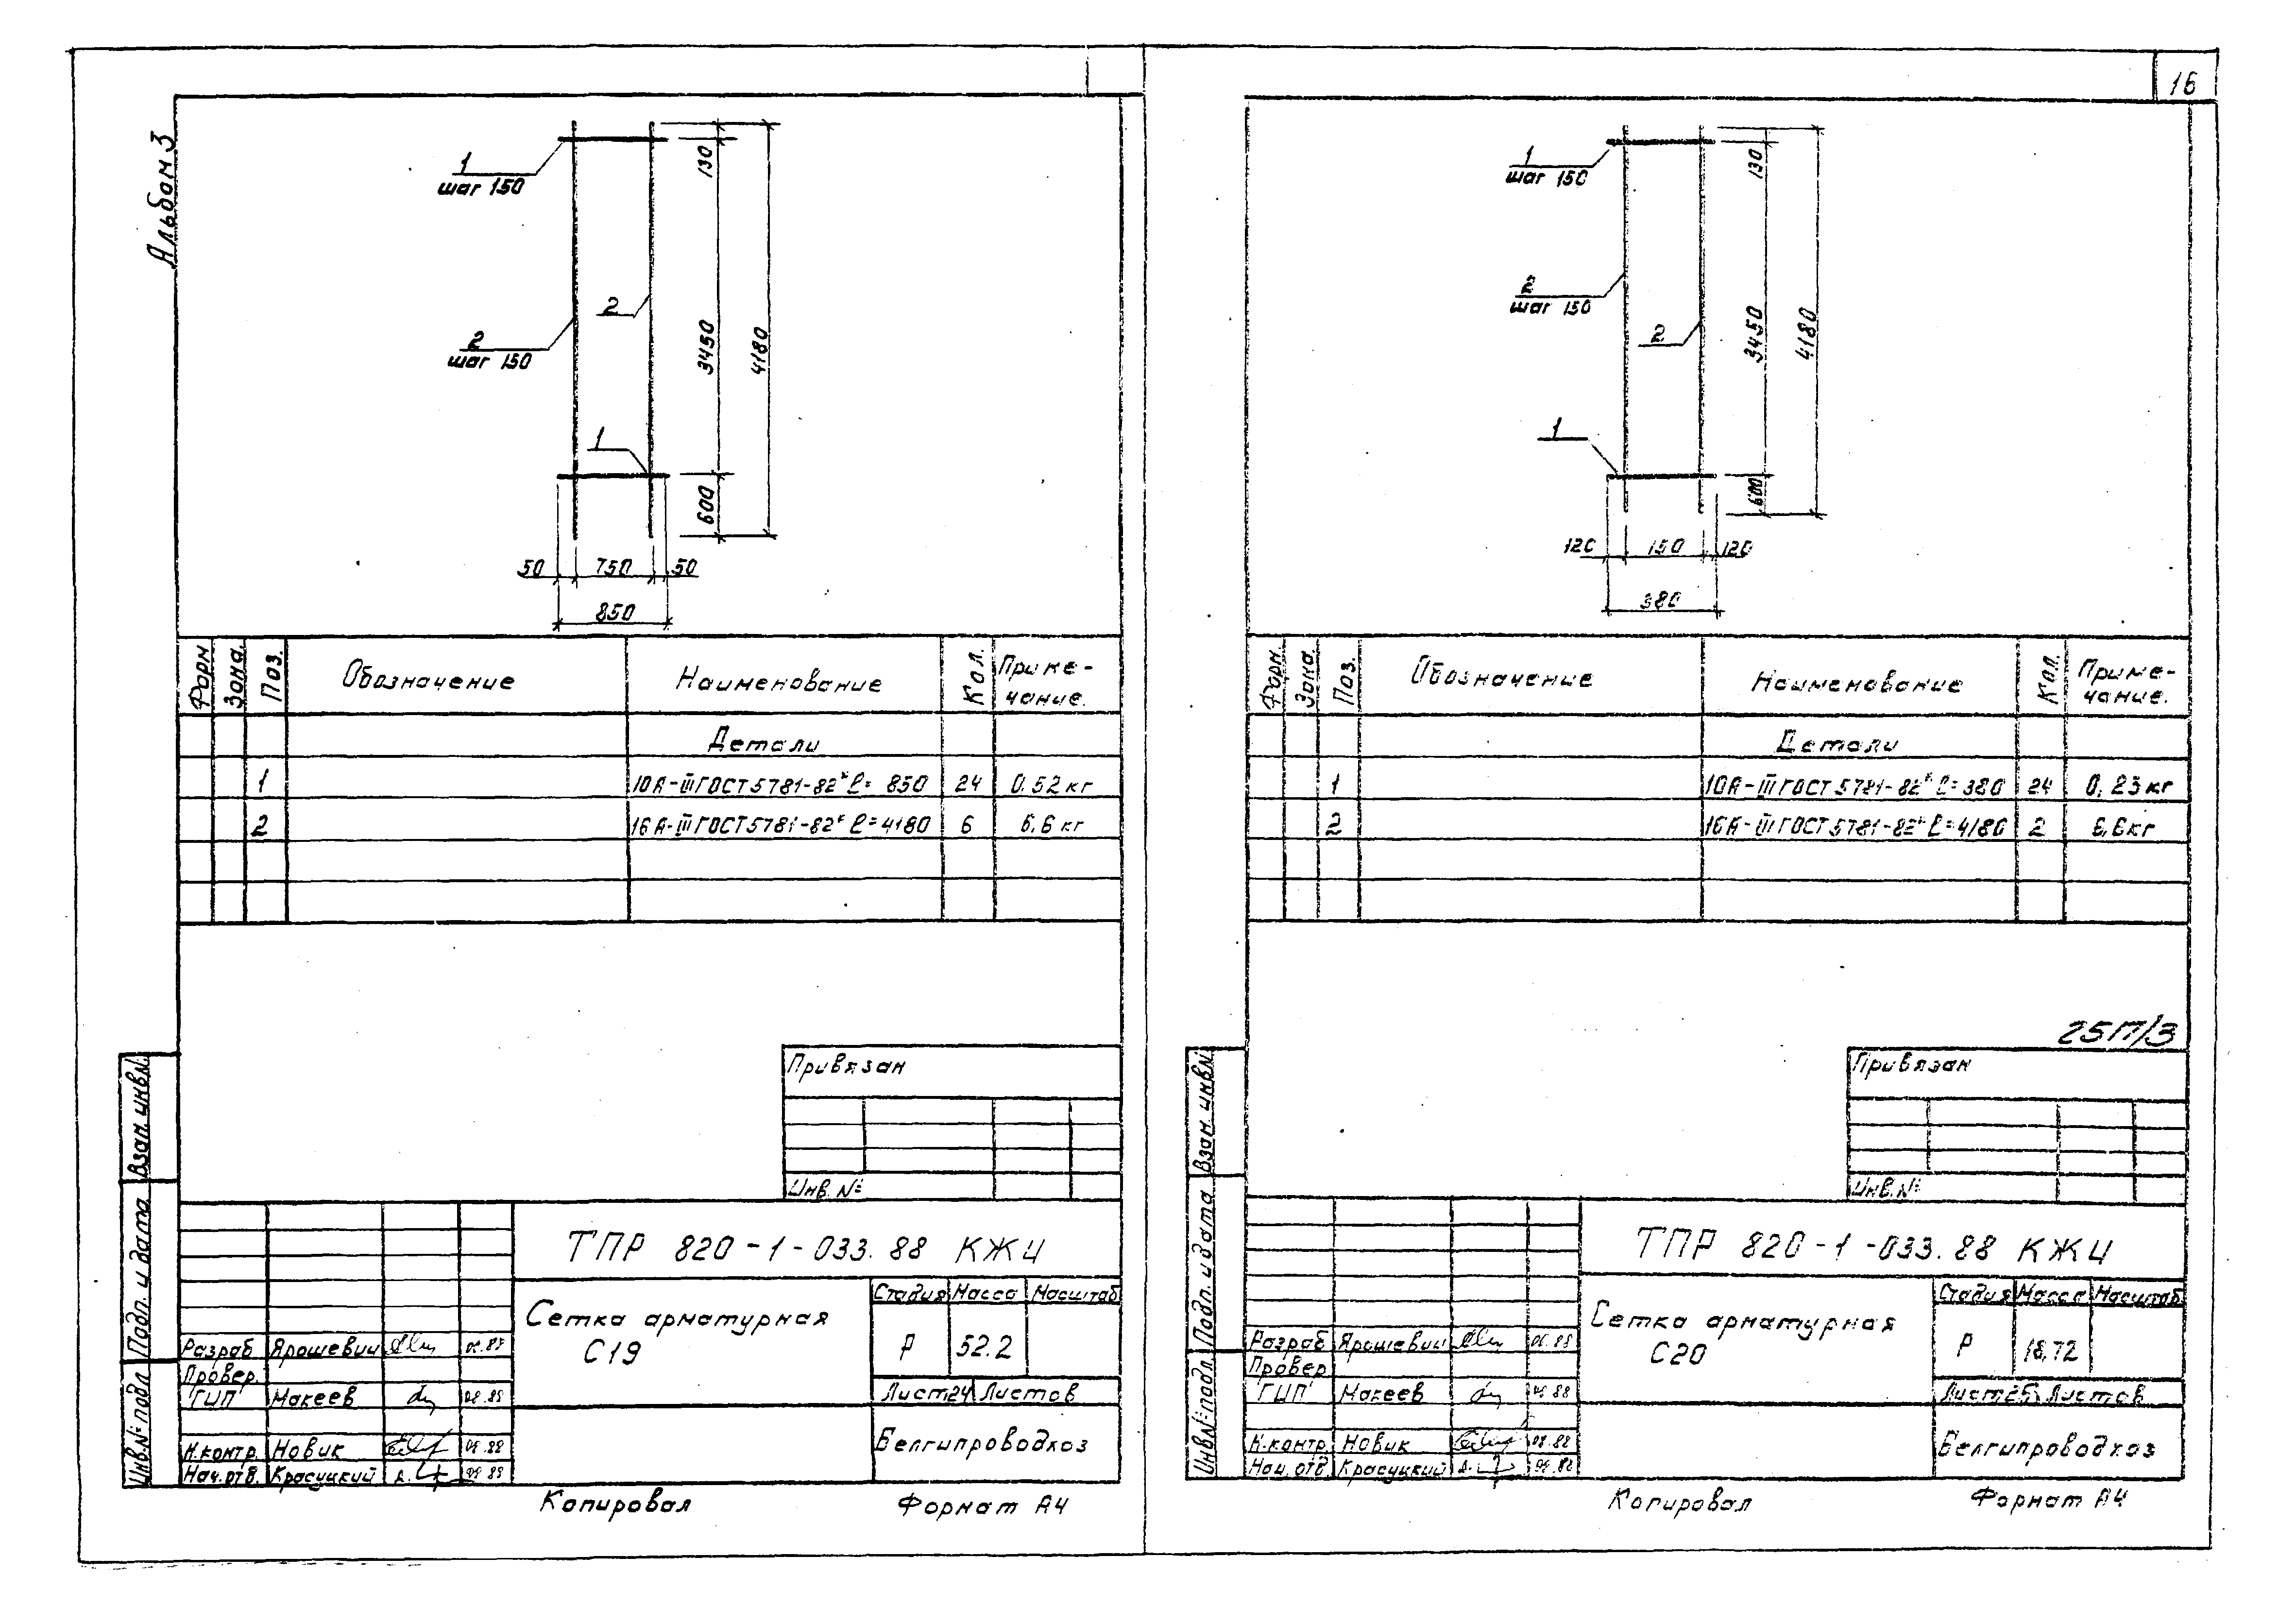 Альбом 3
1
шаг 150
2
шаг 150
2
1
130
3450
4180
600
50 750 50
850
Форм
Зона.
Поз.
Обозначение
Наименование
Кол.
Приме-
чание.
Детали
1 10А-III ГОСТ 5781-82* ℓ= 850 24 0.52 кг
2 16А-III ГОСТ 5781-82* ℓ=4180 6 6,6 кг
Привязан
Инв. №
ТПР 820-1-033.88 КЖИ
Сетка арматурная
С19
Стадия Масса Масштаб
Р 52.2
Лист 24 Листов
Белгипроводхоз
Разраб Ярошевич
Провер.
ГИП Макеев 08.88
Н.контр. Новик 08.88
Нач.отв. Красуцкий 08.88
Взам. инв.№
Подп. и дата
Инв.№ подл
Копировал Формат А4
16
1
шаг 150
2
шаг 150
2
1
130
3450
4180
600
120 150 120
380
Форм.
Зона.
Поз.
Обозначение
Наименование
Кол.
Приме-
чание.
Детали
1 10А-III ГОСТ 5781-82* ℓ=380 24 0,23 кг
2 16А-III ГОСТ 5781-82* ℓ=4180 2 6,6 кг
25П/3
Привязан
Инв. №
ТПР 820-1-033.88 КЖИ
Сетка арматурная
С20
Стадия Масса Масштаб
Р 18,72
Лист 25 Листов
Белгипроводхоз
Разраб Ярошевич 08.88
Провер
ГИП Макеев 08.88
Н.контр. Новик 08.88
Нач.отв Красуцкий 08.88
Взам. инв№
Подп. и дата
Инв№ подл.
Копировал Формат А4